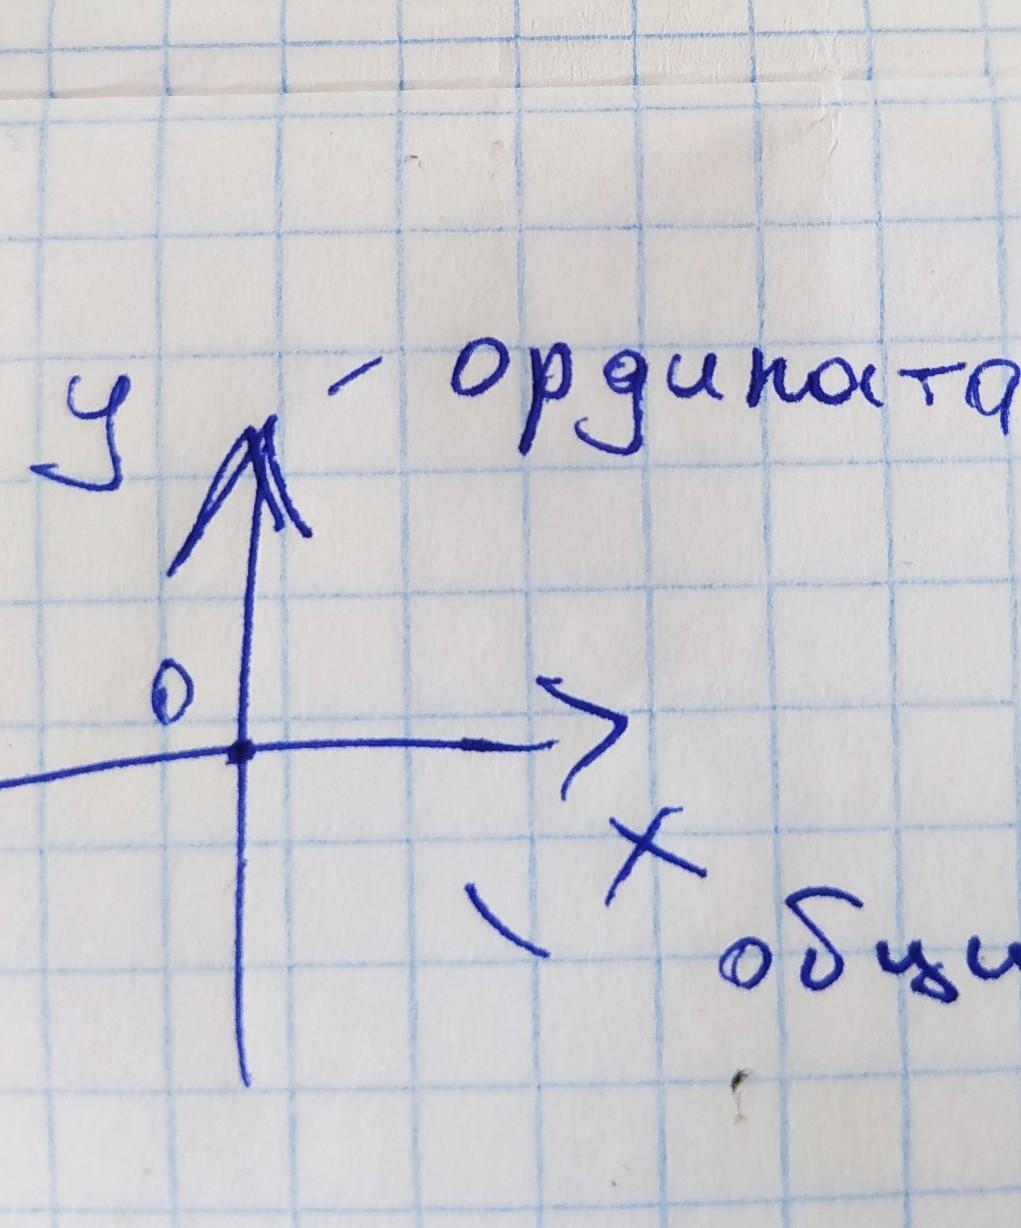 у - ордината
0
x
обци